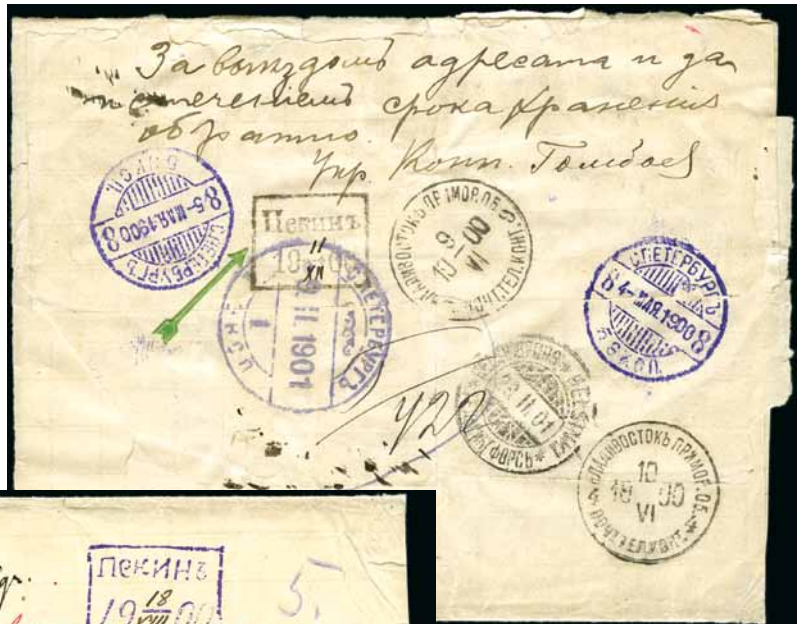 За выѣздомъ адресата и за
истеченіемъ срока храненія
обратно.
Упр. Конт. Гомбоев
С.ПЕТЕРБУРГЪ
5-МАЯ.1900
8 8
Пекинъ
11
1900
XII
С.ПЕТЕРБУРГЪ
II.1901
1
ВЛАДИВОСТОКЪ ПРИМОР.ОБ.
9
19 00
VI
ПОЧТ.ТЕЛ.КОНТ.
С.ПЕТЕРБУРГЪ
8 4-МАЯ.1900 8
420
II.01
ВЛАДИВОСТОКЪ ПРИМОР.ОБ.
10
19 00
VI
ПОЧ.ТЕЛ.КОНТ.
Пекинъ
18
19 00
VIII
5.